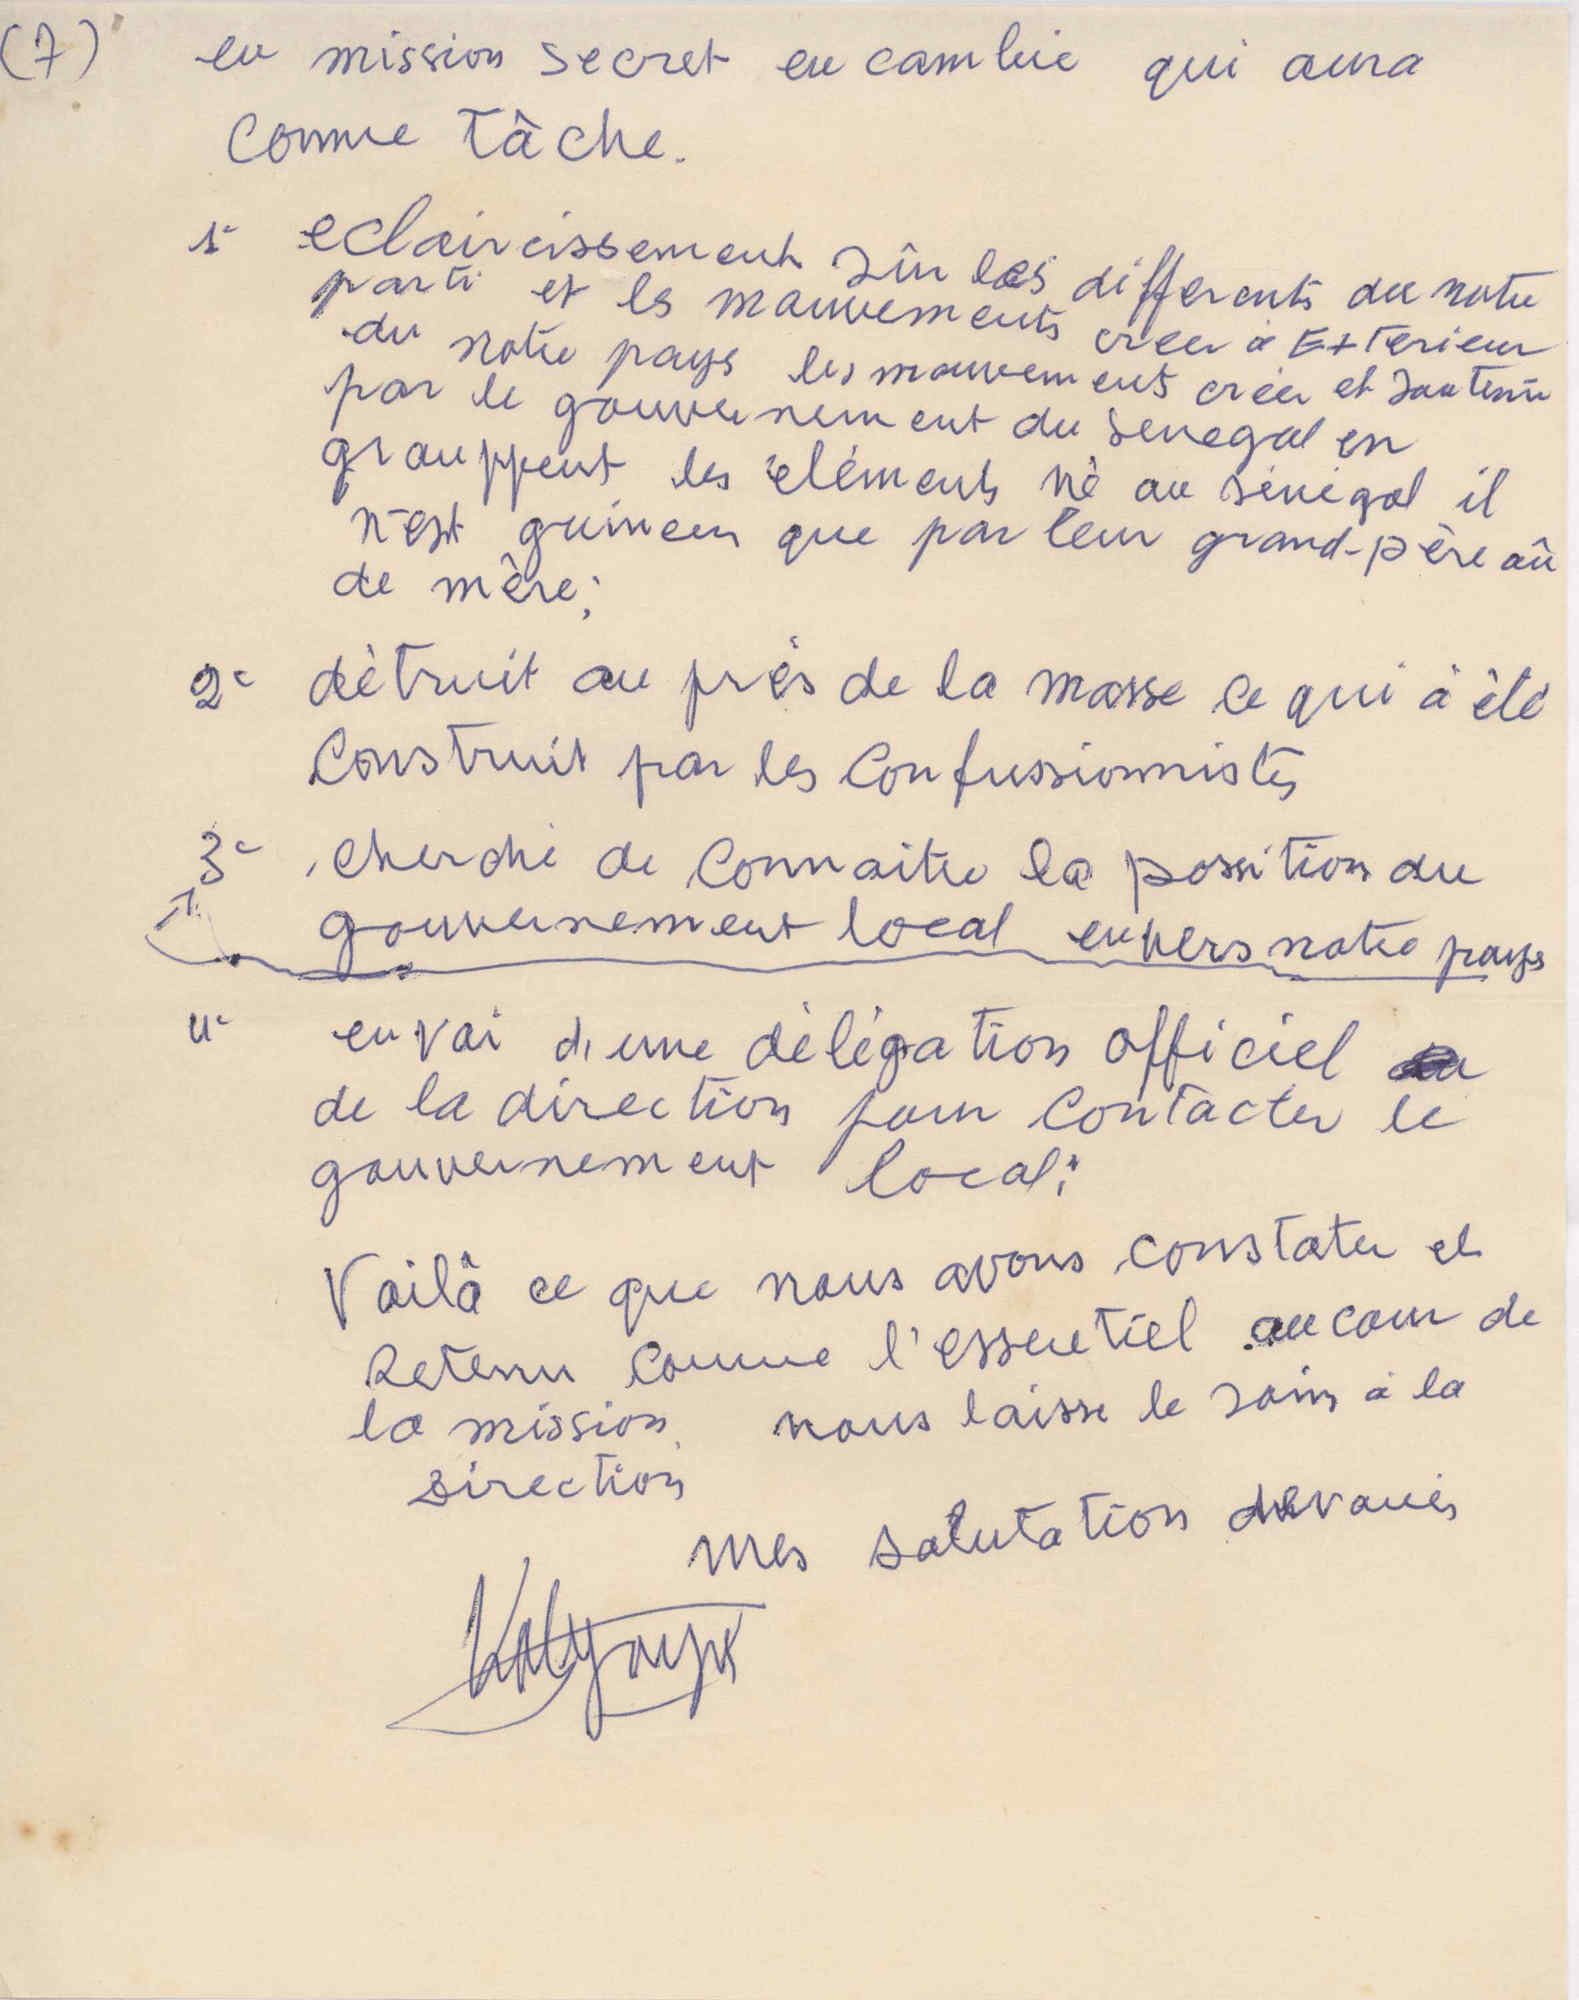 (7) en mission secret en cambie qui aura
comme tâche.
1- eclaircissement sûr les differents du notre
parti et les mouvements creer à Exterieur
du notre pays les mouvements créer et soutenir
par le gouvernement du senegal en
grouppent les eléments né au sénégal il
n'est guineen que par leur grand-père où
de mère;
2- dètruit au près de la masse ce qui à été
construit par les confussionnistes
3- cherché de connaitre la possition du
gouvernement local envers notre pays
4- envoi d'une délégation officiel
de la direction pour contacter le
gouvernement local;
Voilà ce que nous avons constater et
retenu comme l'essentiel au cour de
la mission nous laisse le soin à la
direction
mes salutation devoués